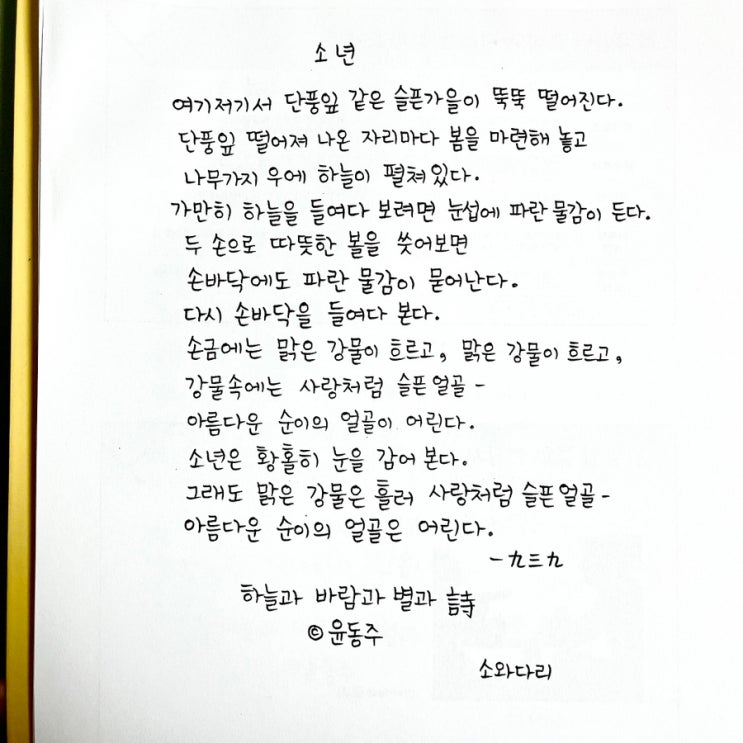 소년
여기저기서 단풍잎 같은 슬픈가을이 뚝뚝 떨어진다.
단풍잎 떨어져 나온 자리마다 봄을 마련해 놓고
나무가지 우에 하늘이 펼쳐있다.
가만히 하늘을 들여다 보려면 눈섭에 파란 물감이 든다.
두 손으로 따뜻한 볼을 씃어보면
손바닥에도 파란 물감이 묻어난다.
다시 손바닥을 들여다 본다.
손금에는 맑은 강물이 흐르고, 맑은 강물이 흐르고,
강물속에는 사랑처럼 슬픈얼골 -
아름다운 순이의 얼골이 어린다.
소년은 황홀히 눈을 감어 본다.
그래도 맑은 강물은 흘러 사랑처럼 슬픈얼골 -
아름다운 순이의 얼골은 어린다.
一九三九
하늘과 바람과 별과 詩
© 윤동주
소와다리